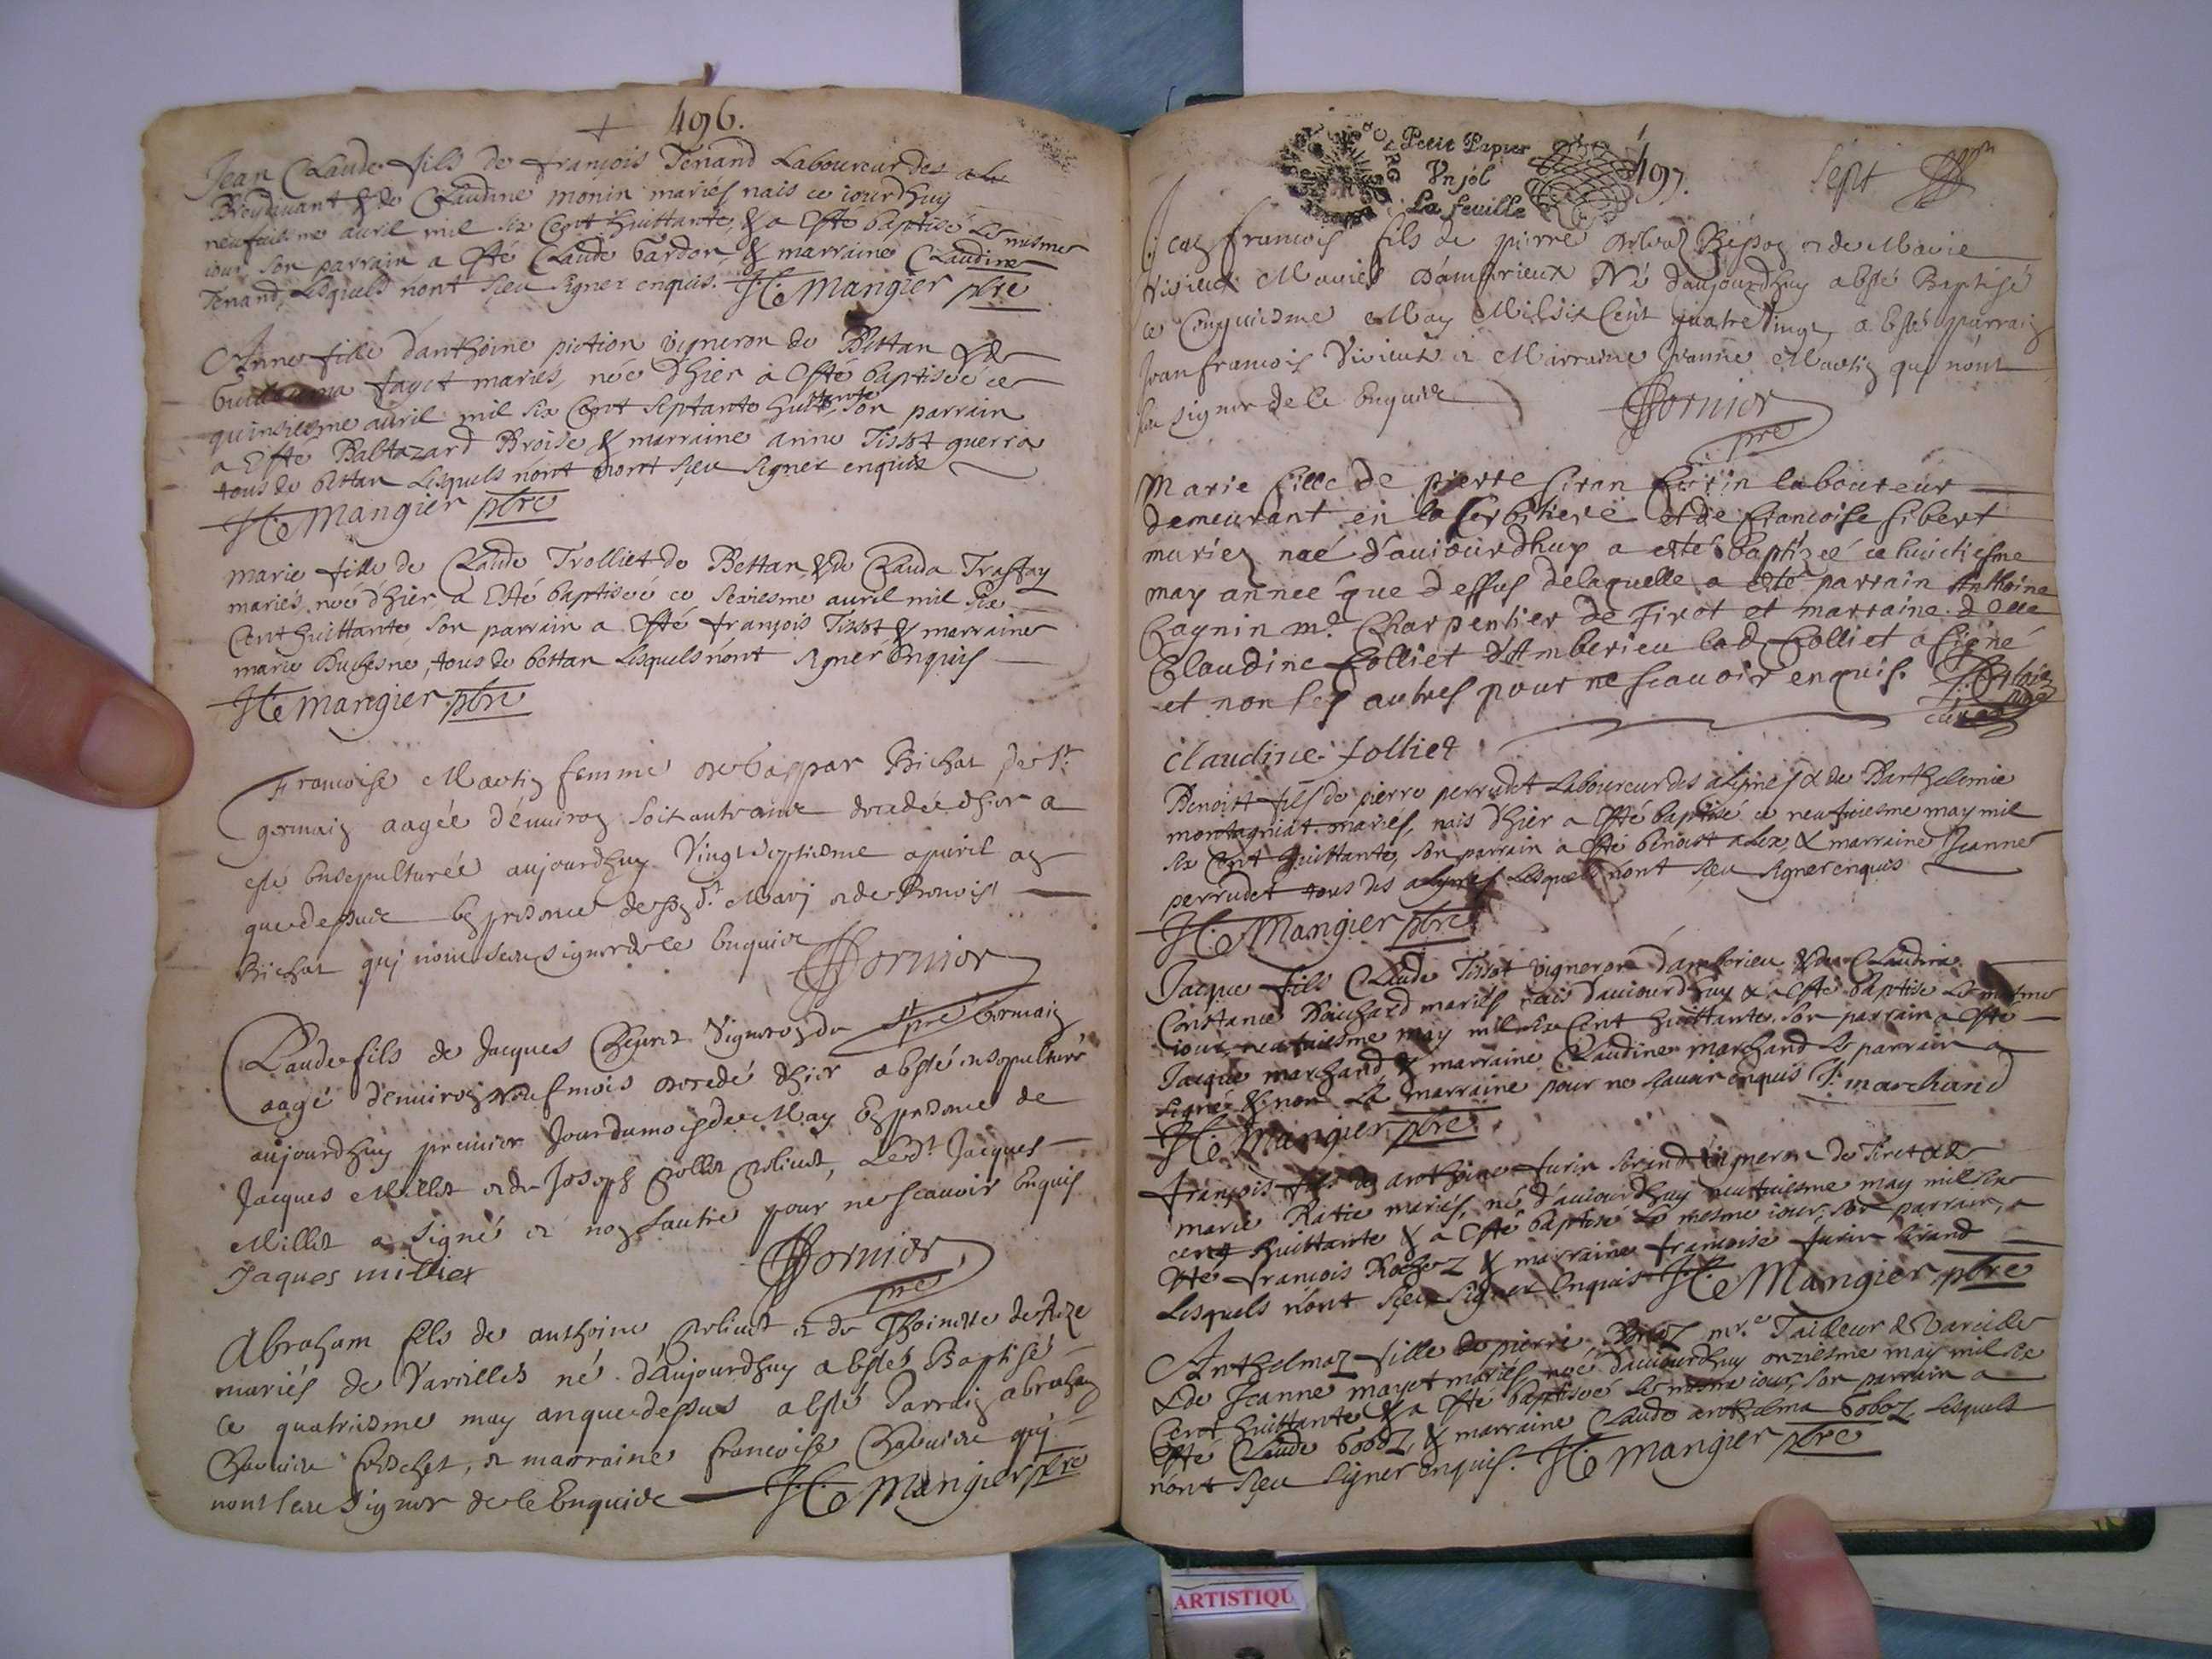 + 496.
Jean Claude fils de françois Tenand Laboureur des
Breydevant & de Claudine monin mariés nais ce iourdhuy
neufuiesme auril mil six Cent huittante, & a Esté baptisé le mesme
iour, son parrain a Esté Claude Gardon, & marraine Claudine
Tenand, Lesquels nont sçeu signer enquis. Mangier pbre
Anne fille d'anthoine piction vigneron de Bettan & de
fayet mariés, née d'hier a Esté baptiseé ce
quinsiesme auril mil six Cent septante huittante son parrain
a Esté Baltazard Broise & marraine anne Tissot guerra
tous de bettan Lesquels nont nont sçeu signer enquis
Mangier pbre
marie fille de Claude Trolliet de Bettan, & de Clauda
mariés, neé d'hier, a Esté baptiseé ce seziesme auril mil six
Cent huittante, son parrain a Esté françois Tissot & marraine
marie Buchesne, tous de bettan Lesquels n'ont signer Enquis
Mangier pbre
Francoise Martin femme de Gaspar Bichat de St
germain aagée d'enuiron soixante decedée d'hier a
esté ensepulturée aujourdhuy Vingt septiesme apuril an
que dessus en presence de et de Benoist
Bichat qui nont sceu signer de ce Enquis
Fornier
pre
Claude fils de Jacques Vigneron de St Germain
aagé d'enuiron neuf mois decedé d'hier a esté ensepulturé
aujourdhuy premier Jour du mois de May En presence de
Jacques Millet et de Joseph Collet Led.t Jacques
Millet a signé et non l'autre pour ne scauoir Enquis
Jaques millier
Fornier
pre
Abraham fils de anthoine et de Thoinette de Rize
mariés de Vareilles né d'aujourdhuy a esté Baptisé
ce quatriesme may an que dessus a esté Parrain abraham
et marraine francoise qui
nont sceu signer de ce Enquis Mangier pbre
Petit Papier
Vn sol
La feuille
497.
Sept
Jean francois fils de pierre et de Marie
Vivieux Mariés d'ambérieux Né d'aujourdhuy a esté Baptisé
ce Cinquiesme May Mil six Cent quatre Vingt, a Esté parrain
Jean francois Vivieux et Marraine Jeanne Martin qui nont
sceu signer de ce Enquis
Fornier
pre
Marie fille de pierre Siran laboureur
demeurant en la et de francoise Sibert
mariez neé d'auiourdhuy a estée baptizeé ce huictiesme
may anneé que dessus de laquelle a esté parrain Anthoine
Cagnin m.e Charpentier de Tiret et marraine d.elle
Claudine folliet d'Amberieu lad. folliet a signé
et non les autres pour ne scauoir enquis.
claudine folliet
Benoist fils de pierre perrudet Laboureur des alymes & de Barthelemie
montagniat mariés, nais d'hier a Esté baptisé ce neufuiesme may mil
six Cent huittante, son parrain a Esté benoist alex, & marraine Jeanne
perrudet tous des alymes Lesquels nont sçeu signer enquis
Mangier pbre
Jacque fils Claude Tissot vigneron d'amberieu & de Claudine
Constance mariés nais d'auiourdhuy & a Esté baptisé Le mesme
iour neufuiesme may mil six Cent huittante, son parrain a Esté
Jacque marchand, & marraine Claudine marchand Le parrain a
signé & non La marraine pour ne sçauoir enquis J. marchand
Mangier pbre
françois fils de anthoine furin sirand vigneron de Tiret & de
marie Ratie mariés, né d'auiourdhuy neufuiesme may mil six
cent huittante & a Esté baptisé Le mesme iour, son parrain, a
Esté françois Rochez & marraine françoise furin sirand
Lesquels n'ont sçeu signer Enquis Mangier pbre
fille de pierre mr.e Tailleur de Vareilles
& de Jeanne mayet mariés, neé d'auiourdhuy onziesme may mil six
Cent huittante & a Esté baptiseé Le mesme iour, son parrain a
Esté Claude Goboz, & marraine Claude anthelma Goboz, Lesquels
n'ont sçeu signer enquis. Mangier pbre
ARTISTIQU